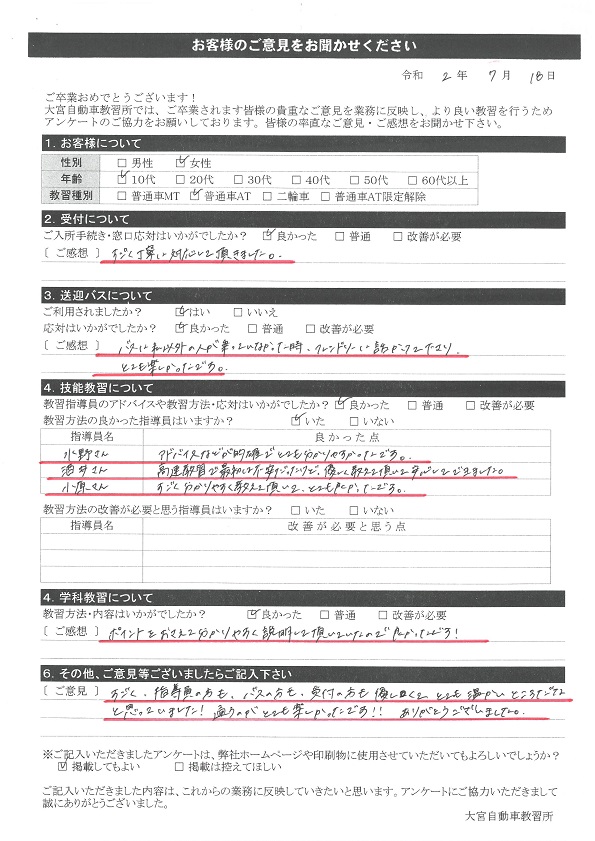 お客様のご意見をお聞かせください
令和 2 年 7 月 18 日
ご卒業おめでとうございます！
大宮自動車教習所では、ご卒業されます皆様の貴重なご意見を業務に反映し、より良い教習を行うため
アンケートのご協力をお願いしております。皆様の率直なご意見・ご感想をお聞かせ下さい。
1. お客様について
性別 □ 男性 ☑ 女性
年齢 ☑ 10代 □ 20代 □ 30代 □ 40代 □ 50代 □ 60代以上
教習種別 □ 普通車MT ☑ 普通車AT □ 二輪車 □ 普通車AT限定解除
2. 受付について
ご入所手続き・窓口応対はいかがでしたか？ ☑ 良かった □ 普通 □ 改善が必要
［ ご感想 ］ すごく丁寧に対応して頂きました。
3. 送迎バスについて
ご利用されましたか？ ☑ はい □ いいえ
応対はいかがでしたか？ ☑ 良かった □ 普通 □ 改善が必要
［ ご感想 ］ バスに私以外の人が乗っていなかった時、フレンドリーに話かけてくださり、
とても楽しかったです。
4. 技能教習について
教習指導員のアドバイスや教習方法・応対はいかがでしたか？ ☑ 良かった □ 普通 □ 改善が必要
教習方法の良かった指導員はいますか？ ☑ いた □ いない
指導員名 良かった点
水野さん アドバイスなどが的確でとても分かりやすかったです。
酒井さん 高速教習で最初は不安だったけど、優しく教えて頂いて安心してできました。
小原さん すごく分かりやすく教えて頂いて、とても良かったです。
教習方法の改善が必要と思う指導員はいますか？ □ いた □ いない
指導員名 改善が必要と思う点
4. 学科教習について
教習方法・内容はいかがでしたか？ ☑ 良かった □ 普通 □ 改善が必要
［ ご感想 ］ ポイントをおさえて分かりやすく説明して頂いていたので良かったです！
6. その他、ご意見等ございましたらご記入下さい
［ ご意見 ］ すごく、指導員の方も、バスの方も、受付の方も優しくて、とても温かいところだな
と思っていました！通うのがとても楽しかったです!! ありがとうございました。
※ご記入いただきましたアンケートは、弊社ホームページや印刷物に使用させていただいてもよろしいでしょうか？
☑ 掲載してもよい □ 掲載は控えてほしい
ご記入いただきました内容は、これからの業務に反映していきたいと思います。アンケートにご協力いただきまして
誠にありがとうございました。
大宮自動車教習所